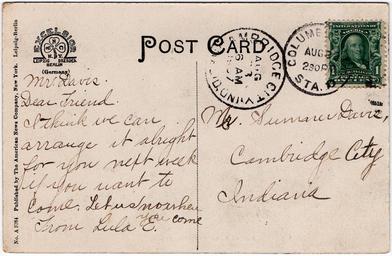 EXCELSIOR
LEIPZIG DRESDEN
BERLIN
(Germany)
POST CARD
CAMBRIDGE CITY
AUG
6 AM
IND.
COLUMB
AUG
230P
STA.
No. A 1784 Published by The American News Company, New York. Leipzig-Berlin
Mr. Davis.
Dear Friend.
I think we can
arrange it alright
for you next week
if you want to
come. Let us no when
you come
From Lula E.
Mr. Davis,
Cambridge City
Indiana